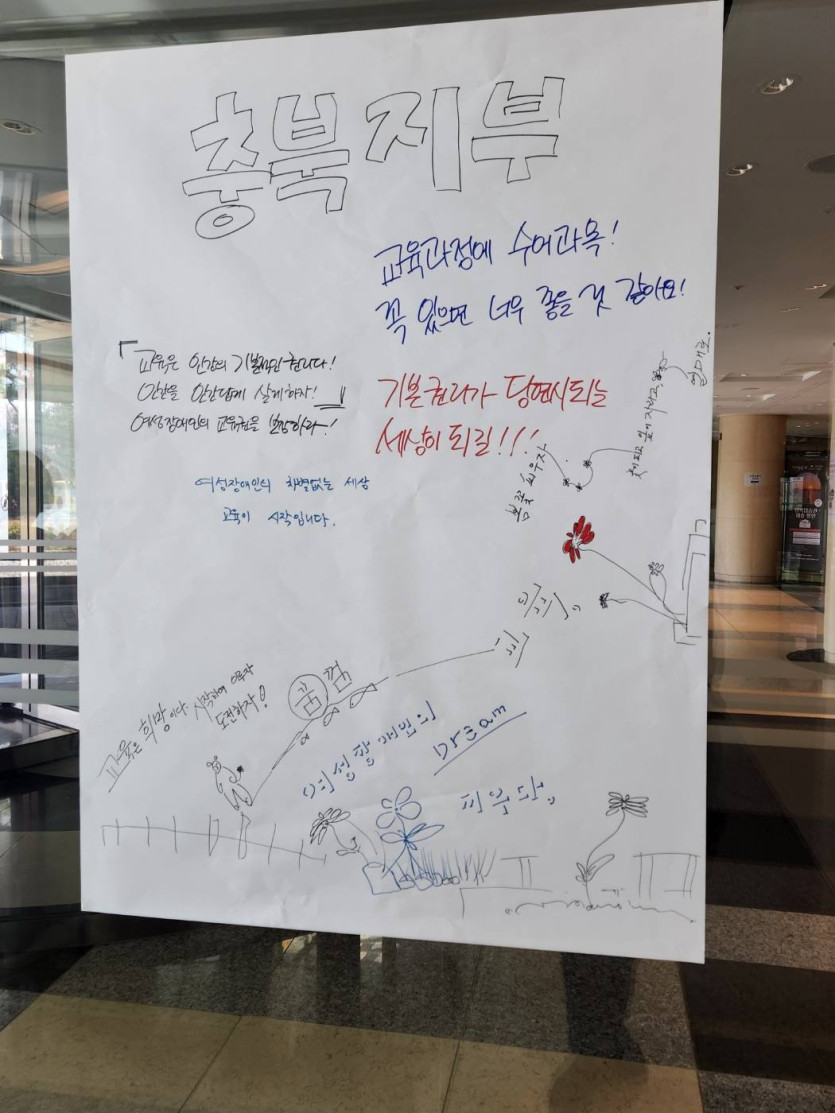 충북지부
교육과정에 수어과목!
꼭 있으면 너무 좋을 것 같아요!
「교육은 인간의 기본적인 권리다!
인간을 인간답게 살게하자!」
여성장애인의 교육권을 보장하라!
기본권리가 당연시되는
세상이 되길!!!
여성장애인의 차별없는 세상
교육이 시작입니다.
봄꽃 피우자
꽃이 되고, 잎이 자라고,
열매로.
교육은 희망이다 시작하여 이루자
도전하자!
꿈
여성장애인의
Dream
피우다.